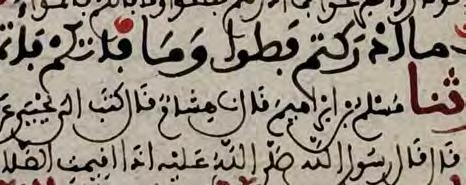 ما ادركتم فصلوا وما فاتكم فاتمـ
ثنا مسلم بن ابراهيم قال نا هشام قال كتب الي يحيى
قال قال رسول الله صلى الله عليه اذا اقيمت الصلا